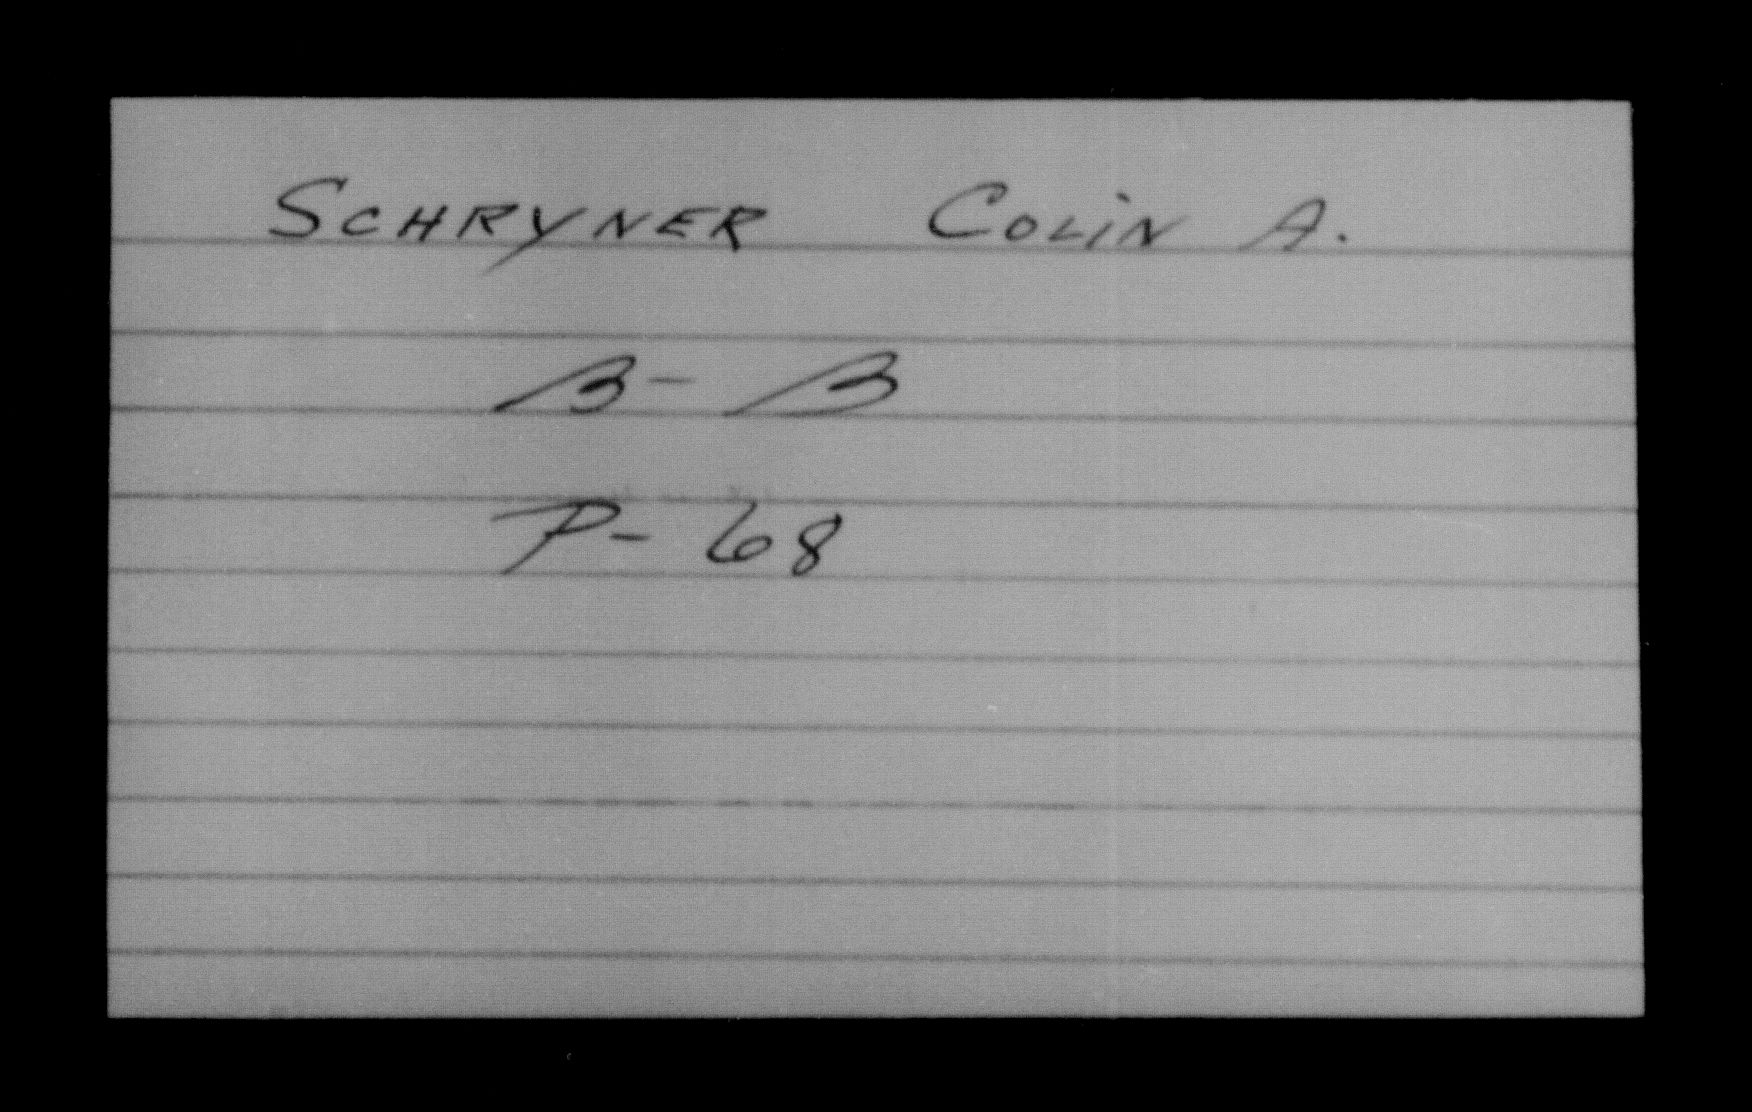 SCHRYNER COLIN A.
B- B
P- 68